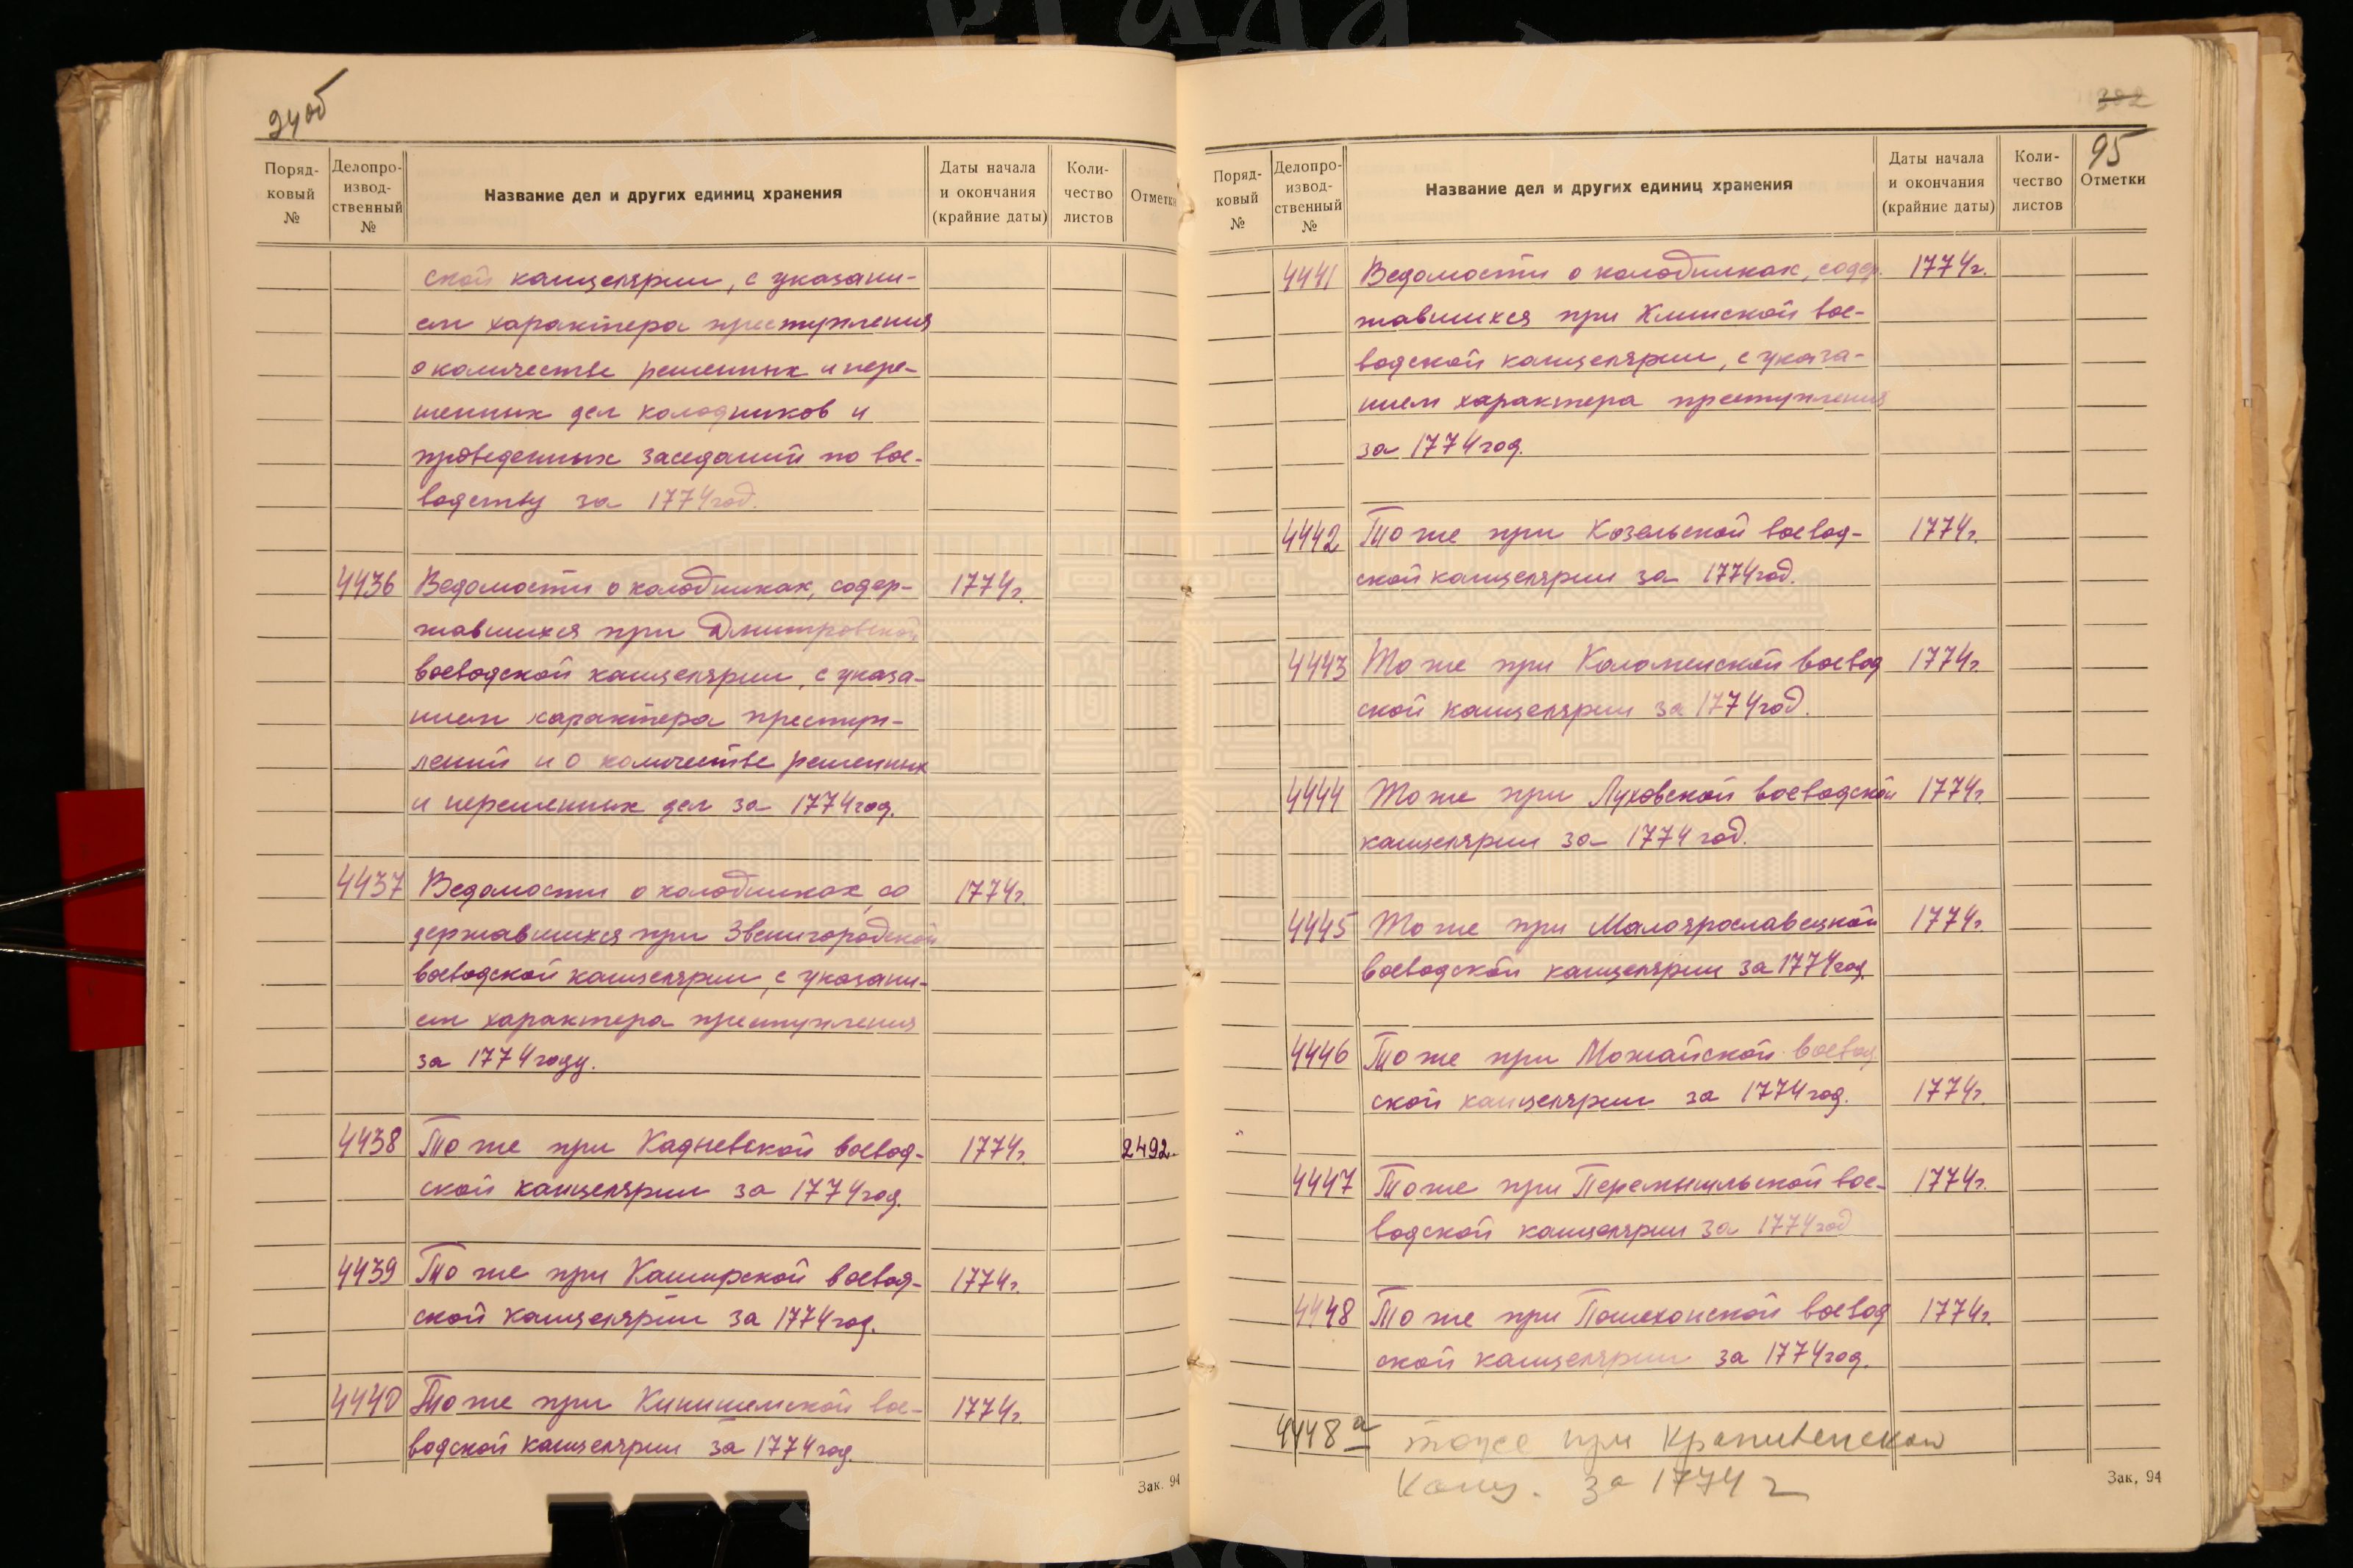 94об
Поряд-
ковый
№
Делопро-
извод-
ственный
№
Название дел и других единиц хранения
Даты начала
и окончания
(крайние даты)
Коли-
чество
листов
Отметки
ской канцелярии, с указани-
ем характера преступления
о количестве решенных и нере-
шенных дел колодников и
проведенных заседаний по вое-
водству за 1774 год.
4436 Ведомости о колодниках, содер- 1774 г.
жавшихся при Дмитровской
воеводской канцелярии, с указа-
нием характера преступ-
лений и о количестве решенных
и нерешенных дел за 1774 год.
4437 Ведомости о колодниках, со 1774 г.
державшихся при Звенигородской
воеводской канцелярии, с указани-
ем характера преступления
за 1774 году.
4438 То же при Кадневской воевод- 1774 г. 2492
ской канцелярии за 1774 год.
4439 То же при Каширской воевод- 1774 г.
ской канцелярии за 1774 год.
4440 То же при Кинишемской вое- 1774 г.
водской канцелярии за 1774 год.
Зак. 94
382
95
Поряд-
ковый
№
Делопро-
извод-
ственный
№
Название дел и других единиц хранения
Даты начала
и окончания
(крайние даты)
Коли-
чество
листов
Отметки
4441 Ведомости о колодниках, содер. 1774 г.
жавшихся при Клинской вое-
водской канцелярии, с указа-
нием характера преступления
за 1774 год.
4442 То же при Козельской воевод- 1774 г.
ской канцелярии за 1774 год.
4443 То же при Коломенской воевод 1774 г.
ской канцелярии за 1774 год.
4444 То же при Луховской воеводской 1774 г.
канцелярии за 1774 год.
4445 То же при Малоярославецкой 1774 г.
воеводской канцелярии за 1774 год.
4446 То же при Можайской воевод
ской канцелярии за 1774 год. 1774 г.
4447 То же при Перемышльской вое- 1774 г.
водской канцелярии за 1774 год
4448 То же при Пошехонской воевод 1774 г.
ской канцелярии за 1774 год.
4448а тоже при Крапивенской
Канц. за 1774 г
Зак. 94